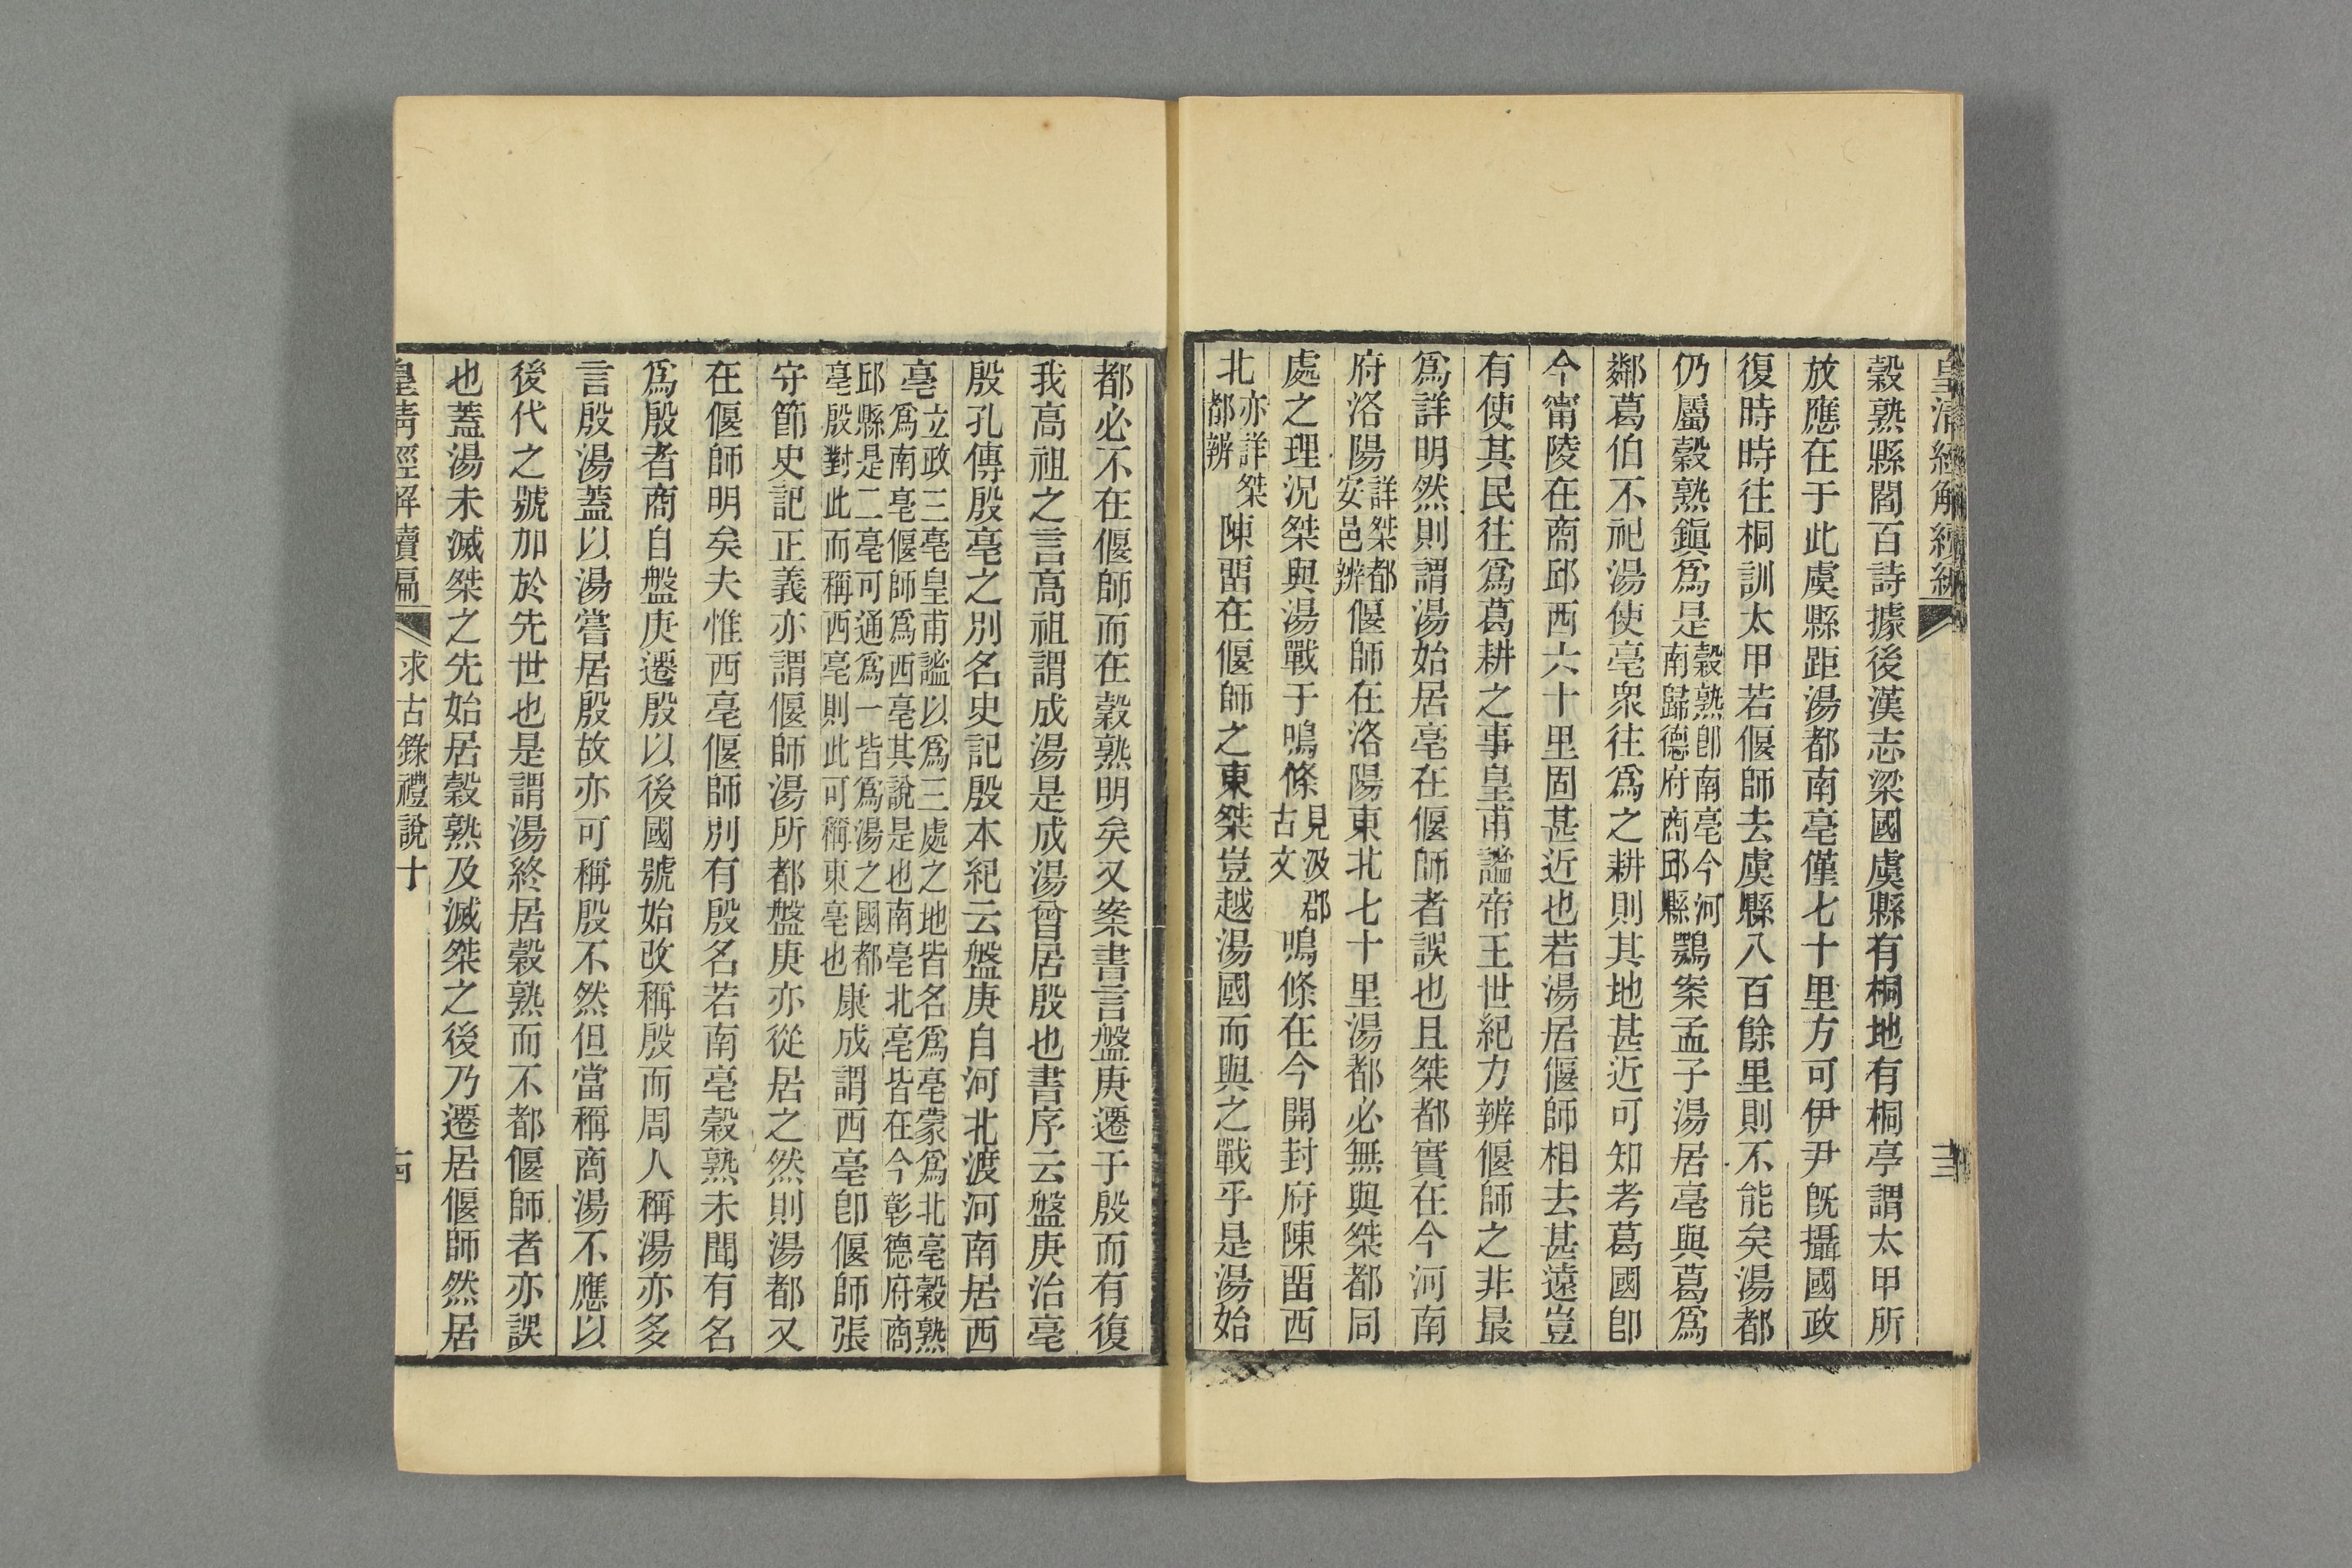 皇清經解續編
十三
穀熟縣閻百詩據後漢志梁國虞縣有桐地有桐亭謂太甲所
放應在于此虞縣距湯都南亳僅七十里方可伊尹旣攝國政
復時時往桐訓太甲若偃師去虞縣八百餘里則不能矣湯都
仍屬穀熟鎭爲是穀熟卽南亳今河南歸德府商邱縣鶚案孟子湯居亳與葛爲
鄰葛伯不祀湯使亳衆往爲之耕則其地甚近可知考葛國卽
今甯陵在商邱西六十里固甚近也若湯居偃師相去甚遠豈
有使其民往爲葛耕之事皇甫謐帝王世紀力辨偃師之非最
爲詳明然則謂湯始居亳在偃師者誤也且桀都實在今河南
府洛陽詳桀都安邑辨偃師在洛陽東北七十里湯都必無與桀都同
處之理況桀與湯戰于鳴條見汲郡古文鳴條在今開封府陳畱西
北亦詳桀都辨陳畱在偃師之東桀豈越湯國而與之戰乎是湯始
都必不在偃師而在穀熟明矣又案書言盤庚遷于殷而有復
我高祖之言高祖謂成湯是成湯曾居殷也書序云盤庚治亳
殷孔傳殷亳之別名史記殷本紀云盤庚自河北渡河南居西
亳立政三亳皇甫謐以爲三處之地皆名爲亳蒙爲北亳穀熟爲南亳偃師爲西亳其說是也南亳北亳皆在今彰德府商邱縣是二亳可通爲一皆爲湯之國都亳殷對此而稱西亳則此可稱東亳也康成謂西亳卽偃師張
守節史記正義亦謂偃師湯所都盤庚亦從居之然則湯都又
在偃師明矣夫惟西亳偃師別有殷名若南亳穀熟未聞有名
爲殷者商自盤庚遷殷以後國號始改稱殷而周人稱湯亦多
言殷湯蓋以湯嘗居殷故亦可稱殷不然但當稱商湯不應以
後代之號加於先世也是謂湯終居穀熟而不都偃師者亦誤
也蓋湯未滅桀之先始居穀熟及滅桀之後乃遷居偃師然居
皇清經解續編
求古錄禮說十
十四